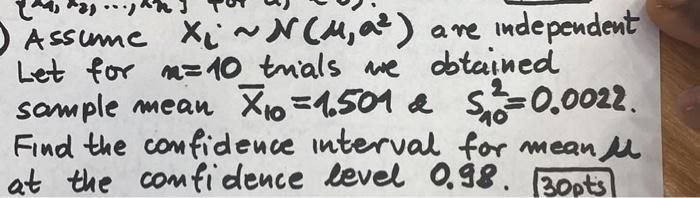 ) Assume Xi ~ N(μ, a²) are independent
Let for n=10 trials we obtained
sample mean X̅₁₀ = 1.501 & S²₁₀ = 0.0022.
Find the confidence interval for mean μ
at the confidence level 0.98. 30pts